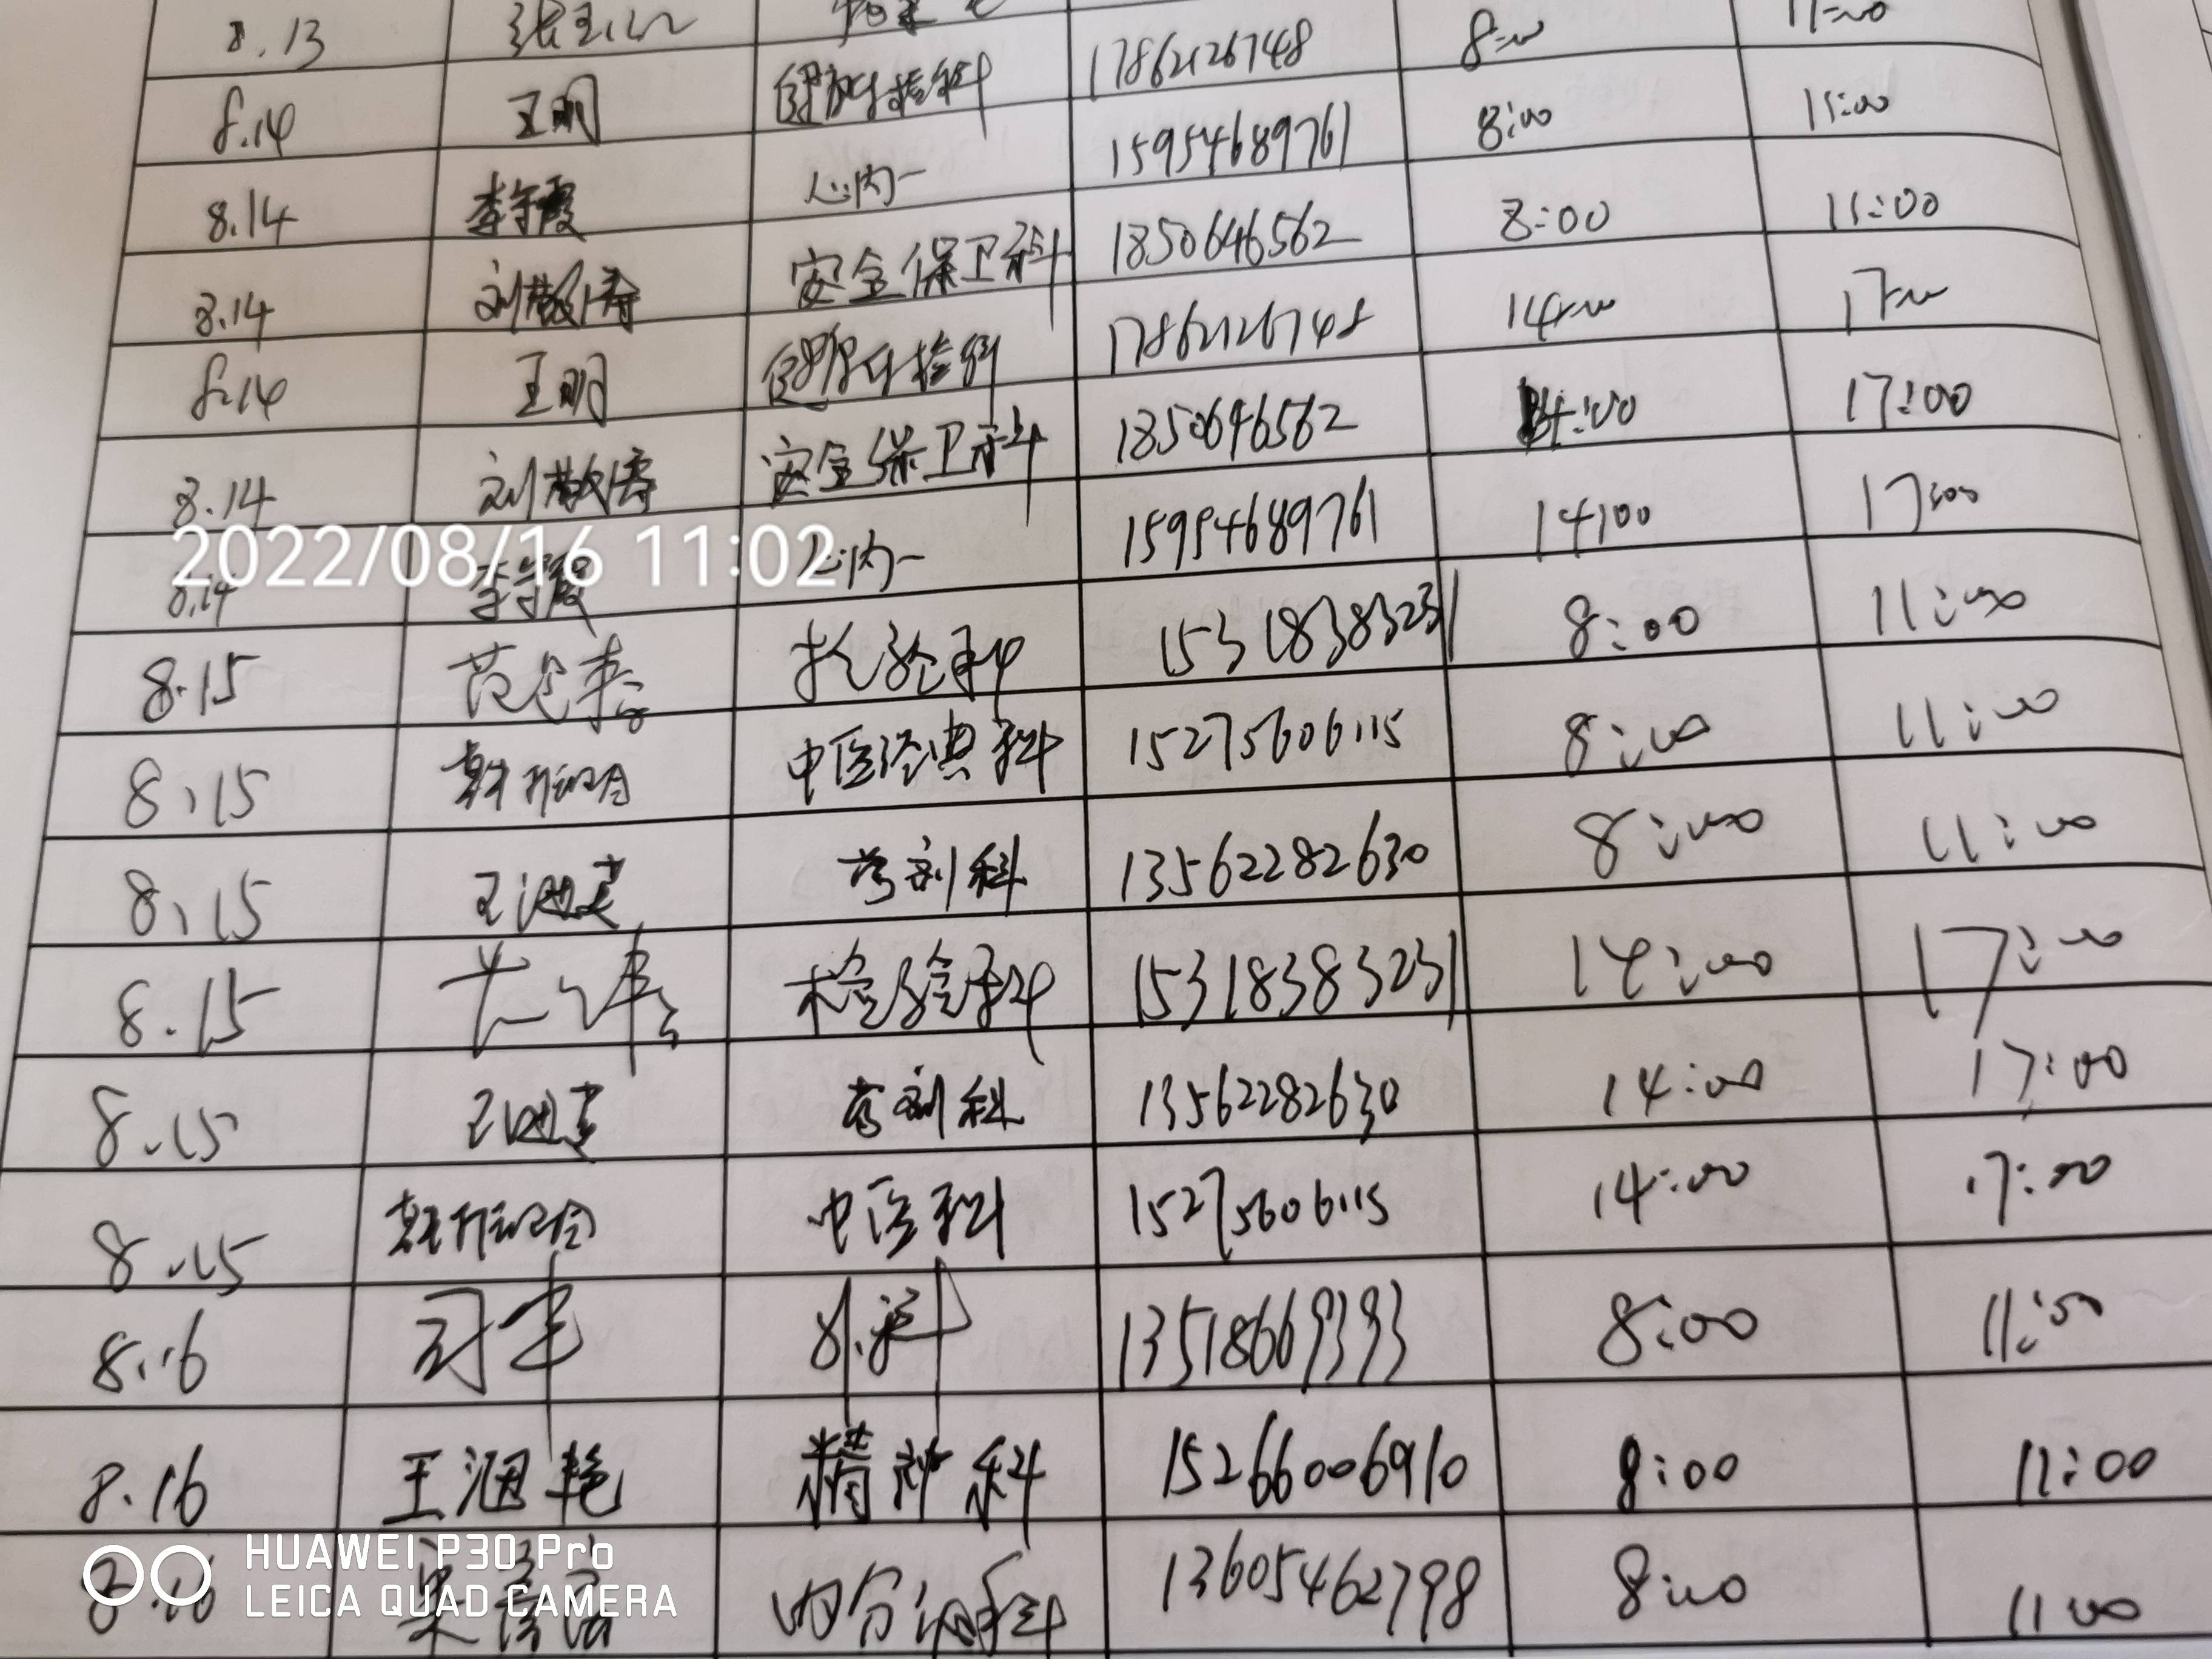 8.13 8:00 11:00
8.14 王明 健康体检科 17862126748 8:00 11:00
8.14 李守霞 心内一 15954689761 8:00 11:00
8.14 刘敬涛 安全保卫科 1850646562 14:00 17:00
8.14 王明 健康体检科 17862126748 14:00 17:00
8.14 刘敬涛 安全保卫科 1850646562
8.14 李守霞 心内一 15954689761 14:00 17:00
2022/08/16 11:02
8.15 检验科 15318383231 8:00 11:00
8.15 中医经典科 15275606115 8:00 11:00
8.15 药剂科 13562282630 8:00 11:00
8.15 检验科 15318383231 14:00 17:00
8.15 药剂科 13562282630 14:00 17:00
8.15 中医科 15275606115 14:00 17:00
8.16 外科 13518669393 8:00 11:00
8.16 王洇艳 精神科 15266006910 8:00 11:00
8.16 内分泌科 13605462798 8:00 11:00
HUAWEI P30 Pro
LEICA QUAD CAMERA